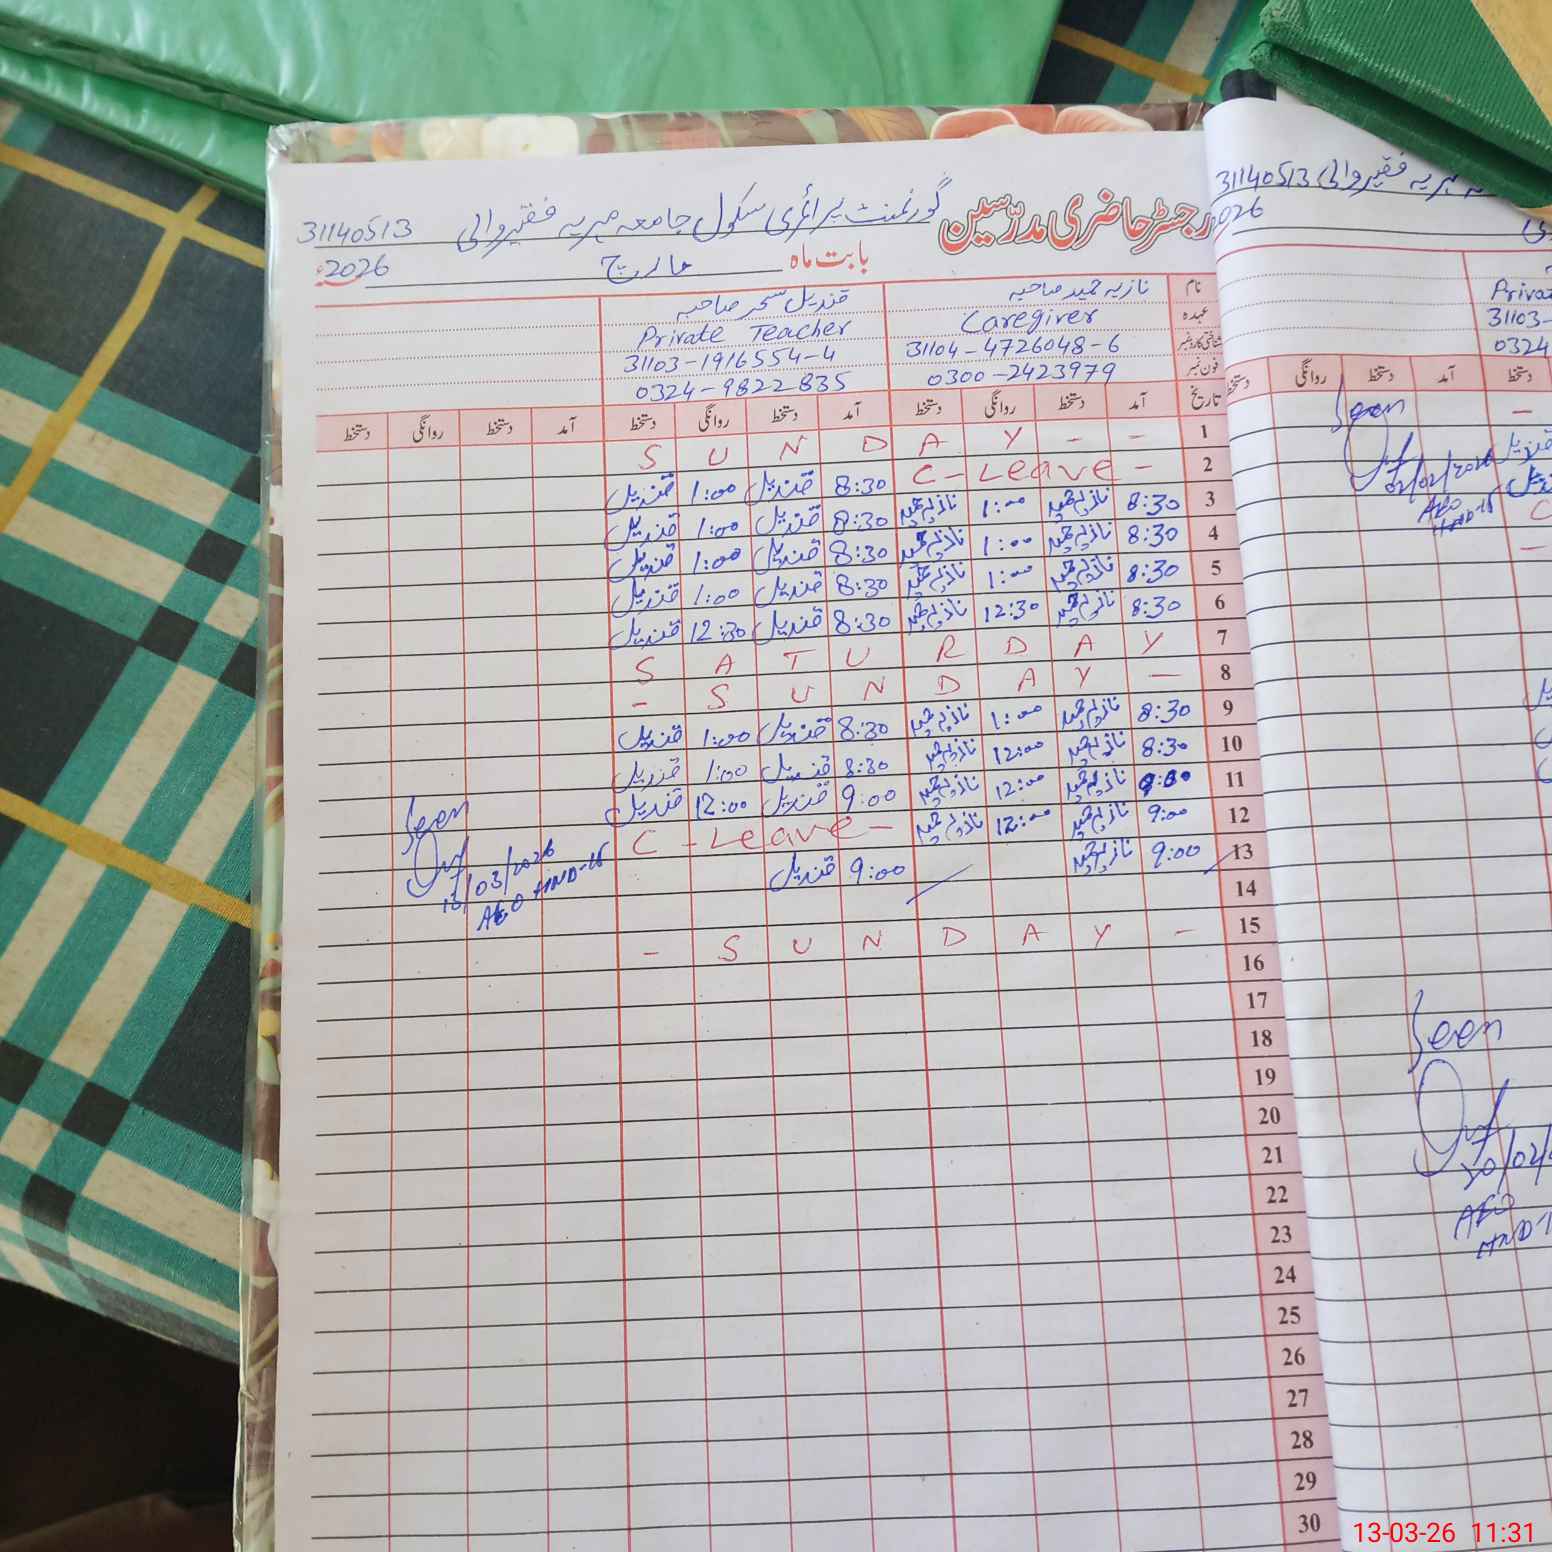 رجسٹر حاضری مدرّسین گورنمنٹ پرائمری سکول جامعہ مہریہ فقیروالی 31140513
بابت ماہ مارچ 2026ء
نام نازیہ حمید صاحبہ قندیل سحر صاحبہ
عہدہ Caregiver Private Teacher
شناختی کارڈ نمبر 31104-4726048-6 31103-1916554-4
فون نمبر 0300-2423979 0324-9822835
تاریخ آمد دستخط روانگی دستخط آمد دستخط روانگی دستخط آمد دستخط روانگی دستخط
1 S U N D A Y - -
2 C-Leave - 8:30 قندیل 1:00 قندیل
3 8:30 نازیہ حمید 1:00 نازیہ حمید 8:30 قندیل 1:00 قندیل
4 8:30 نازیہ حمید 1:00 نازیہ حمید 8:30 قندیل 1:00 قندیل
5 8:30 نازیہ حمید 1:00 نازیہ حمید 8:30 قندیل 1:00 قندیل
6 8:30 نازیہ حمید 12:30 نازیہ حمید 8:30 قندیل 12:30 قندیل
7 S A T U R D A Y
8 - S U N D A Y -
9 8:30 نازیہ حمید 1:00 نازیہ حمید 8:30 قندیل 1:00 قندیل
10 8:30 نازیہ حمید 12:00 نازیہ حمید 8:30 قندیل 1:00 قندیل
11 نازیہ حمید 12:00 نازیہ حمید 9:00 قندیل 12:00 قندیل
12 9:00 نازیہ حمید 12:00 نازیہ حمید C-Leave-
13 9:00 نازیہ حمید 9:00 قندیل
Seen
/03/2026
AEO HND-
14
15 - S U N D A Y -
16
17
18
19
20
21
22
23
24
25
26
27
28
29
30
31140513 فقیروالی
2026
Private
31103-
0324
دستخط آمد دستخط روانگی دستخط
Seen
02/02/2026
AEO
قندیل
Seen
/02/
AEO
HND-1
13-03-26 11:31